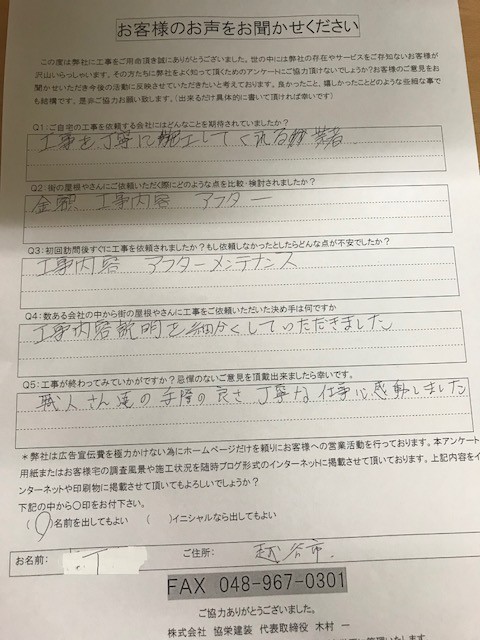 お客様のお声をお聞かせください
この度は弊社に工事をご用命頂き誠にありがとうございました。世の中には弊社の存在やサービスをご存知ないお客様が
沢山いらっしゃいます。その方たちに弊社をよく知って頂くためのアンケートにご協力頂けないでしょうか?お客様のご意見をお
聞かせいただき今後の活動に反映させていただきたいと考えております。良かったこと、嬉しかったことどのような些細な事で
も結構です。是非ご協力お願い致します。(出来るだけ具体的に書いて頂ければ幸いです)
Q1:ご自宅の工事を依頼する会社にはどんなことを期待されていましたか?
工事を丁寧に施工してくれる業者
Q2:街の屋根やさんにご依頼いただく際にどのような点を比較・検討されましたか?
金額 工事内容 アフター
Q3:初回訪問後すぐに工事を依頼されましたか?もし依頼しなかったとしたらどんな点が不安でしたか?
工事内容 アフターメンテナンス
Q4:数ある会社の中から街の屋根やさんに工事をご依頼いただいた決め手は何ですか
工事内容説明を細かくしていただきました
Q5:工事が終わってみていかがですか?忌憚のないご意見を頂戴出来ましたら幸いです。
職人さん達の手際の良さ 丁寧な仕事に感動しました
*弊社は広告宣伝費を極力かけない為にホームページだけを頼りにお客様への営業活動を行っております。本アンケート
用紙またはお客様宅の調査風景や施工状況を随時ブログ形式のインターネットに掲載させて頂いております。上記内容をイ
ンターネットや印刷物に掲載させて頂いてもよろしいでしょうか?
下記の中から〇印をお付下さい。
(〇)名前を出してもよい ( )イニシャルなら出してもよい
お名前: T ご住所: 越谷市
FAX 048-967-0301
ご協力ありがとうございました。
株式会社 協栄建装 代表取締役 木村 一